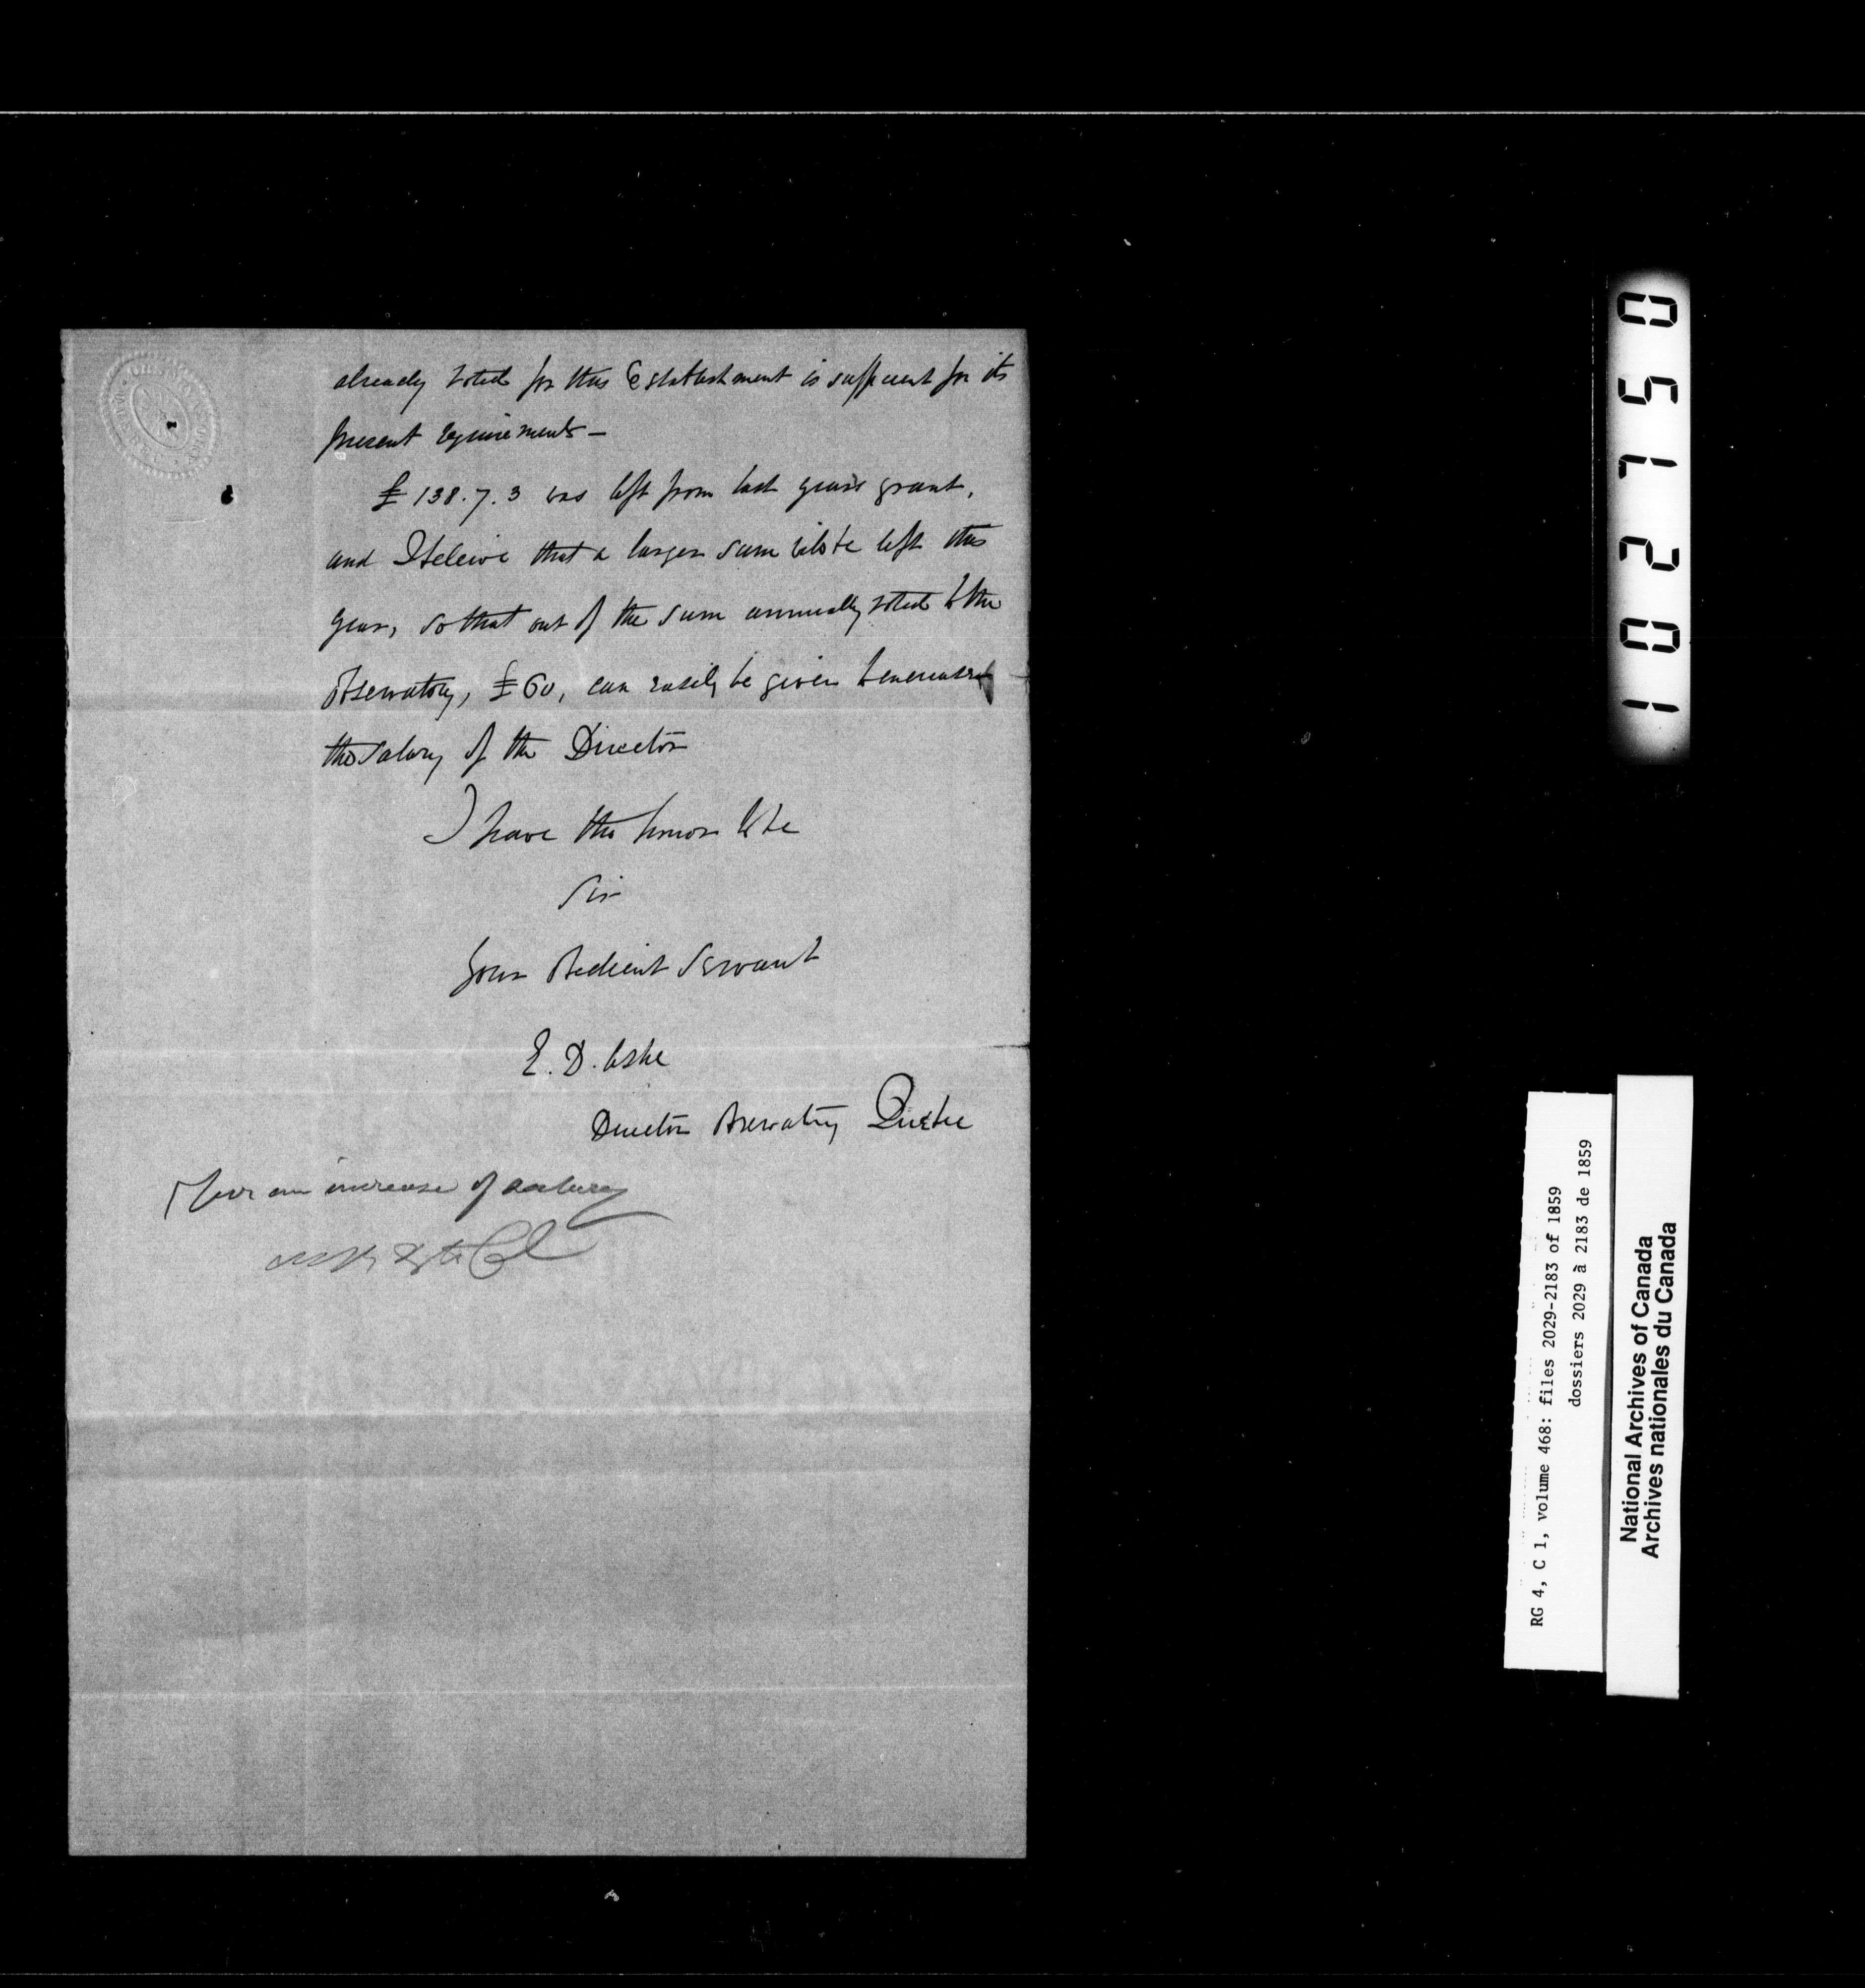 already voted for this Establishment is sufficient for its
present requirements —
£ 138. 7. 3 was left from last year's grant,
and I believe that a larger sum will be left this
year, so that out of the sum annually voted to the
Observatory, £60, can easily be given to increase
the salary of the Director
I have the honor to be
Sir
Your obedient Servant
E. D. Ashe
Director Observatory Quebec
an increase of salary
102150
RG 4, C 1, volume 468: files 2029-2183 of 1859
dossiers 2029 à 2183 de 1859
National Archives of Canada
Archives nationales du Canada